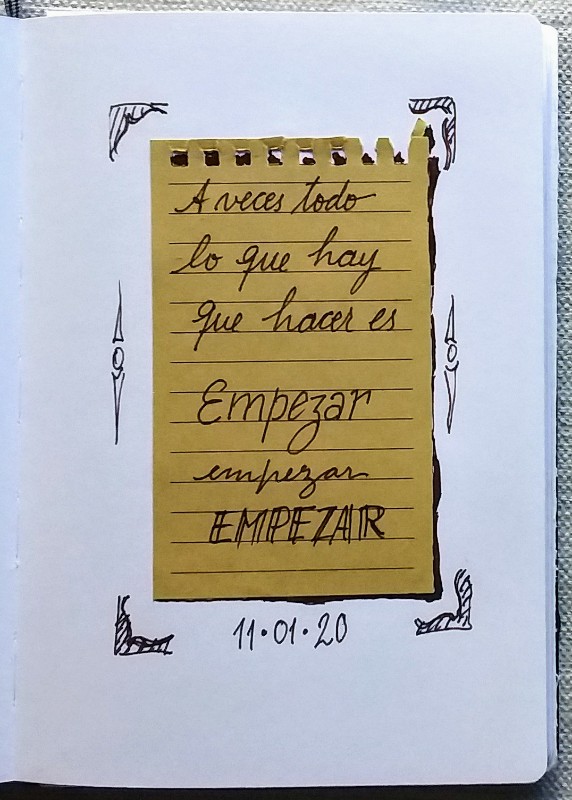 A veces todo
lo que hay
que hacer es
Empezar
empezar
EMPEZAR
11·01·20